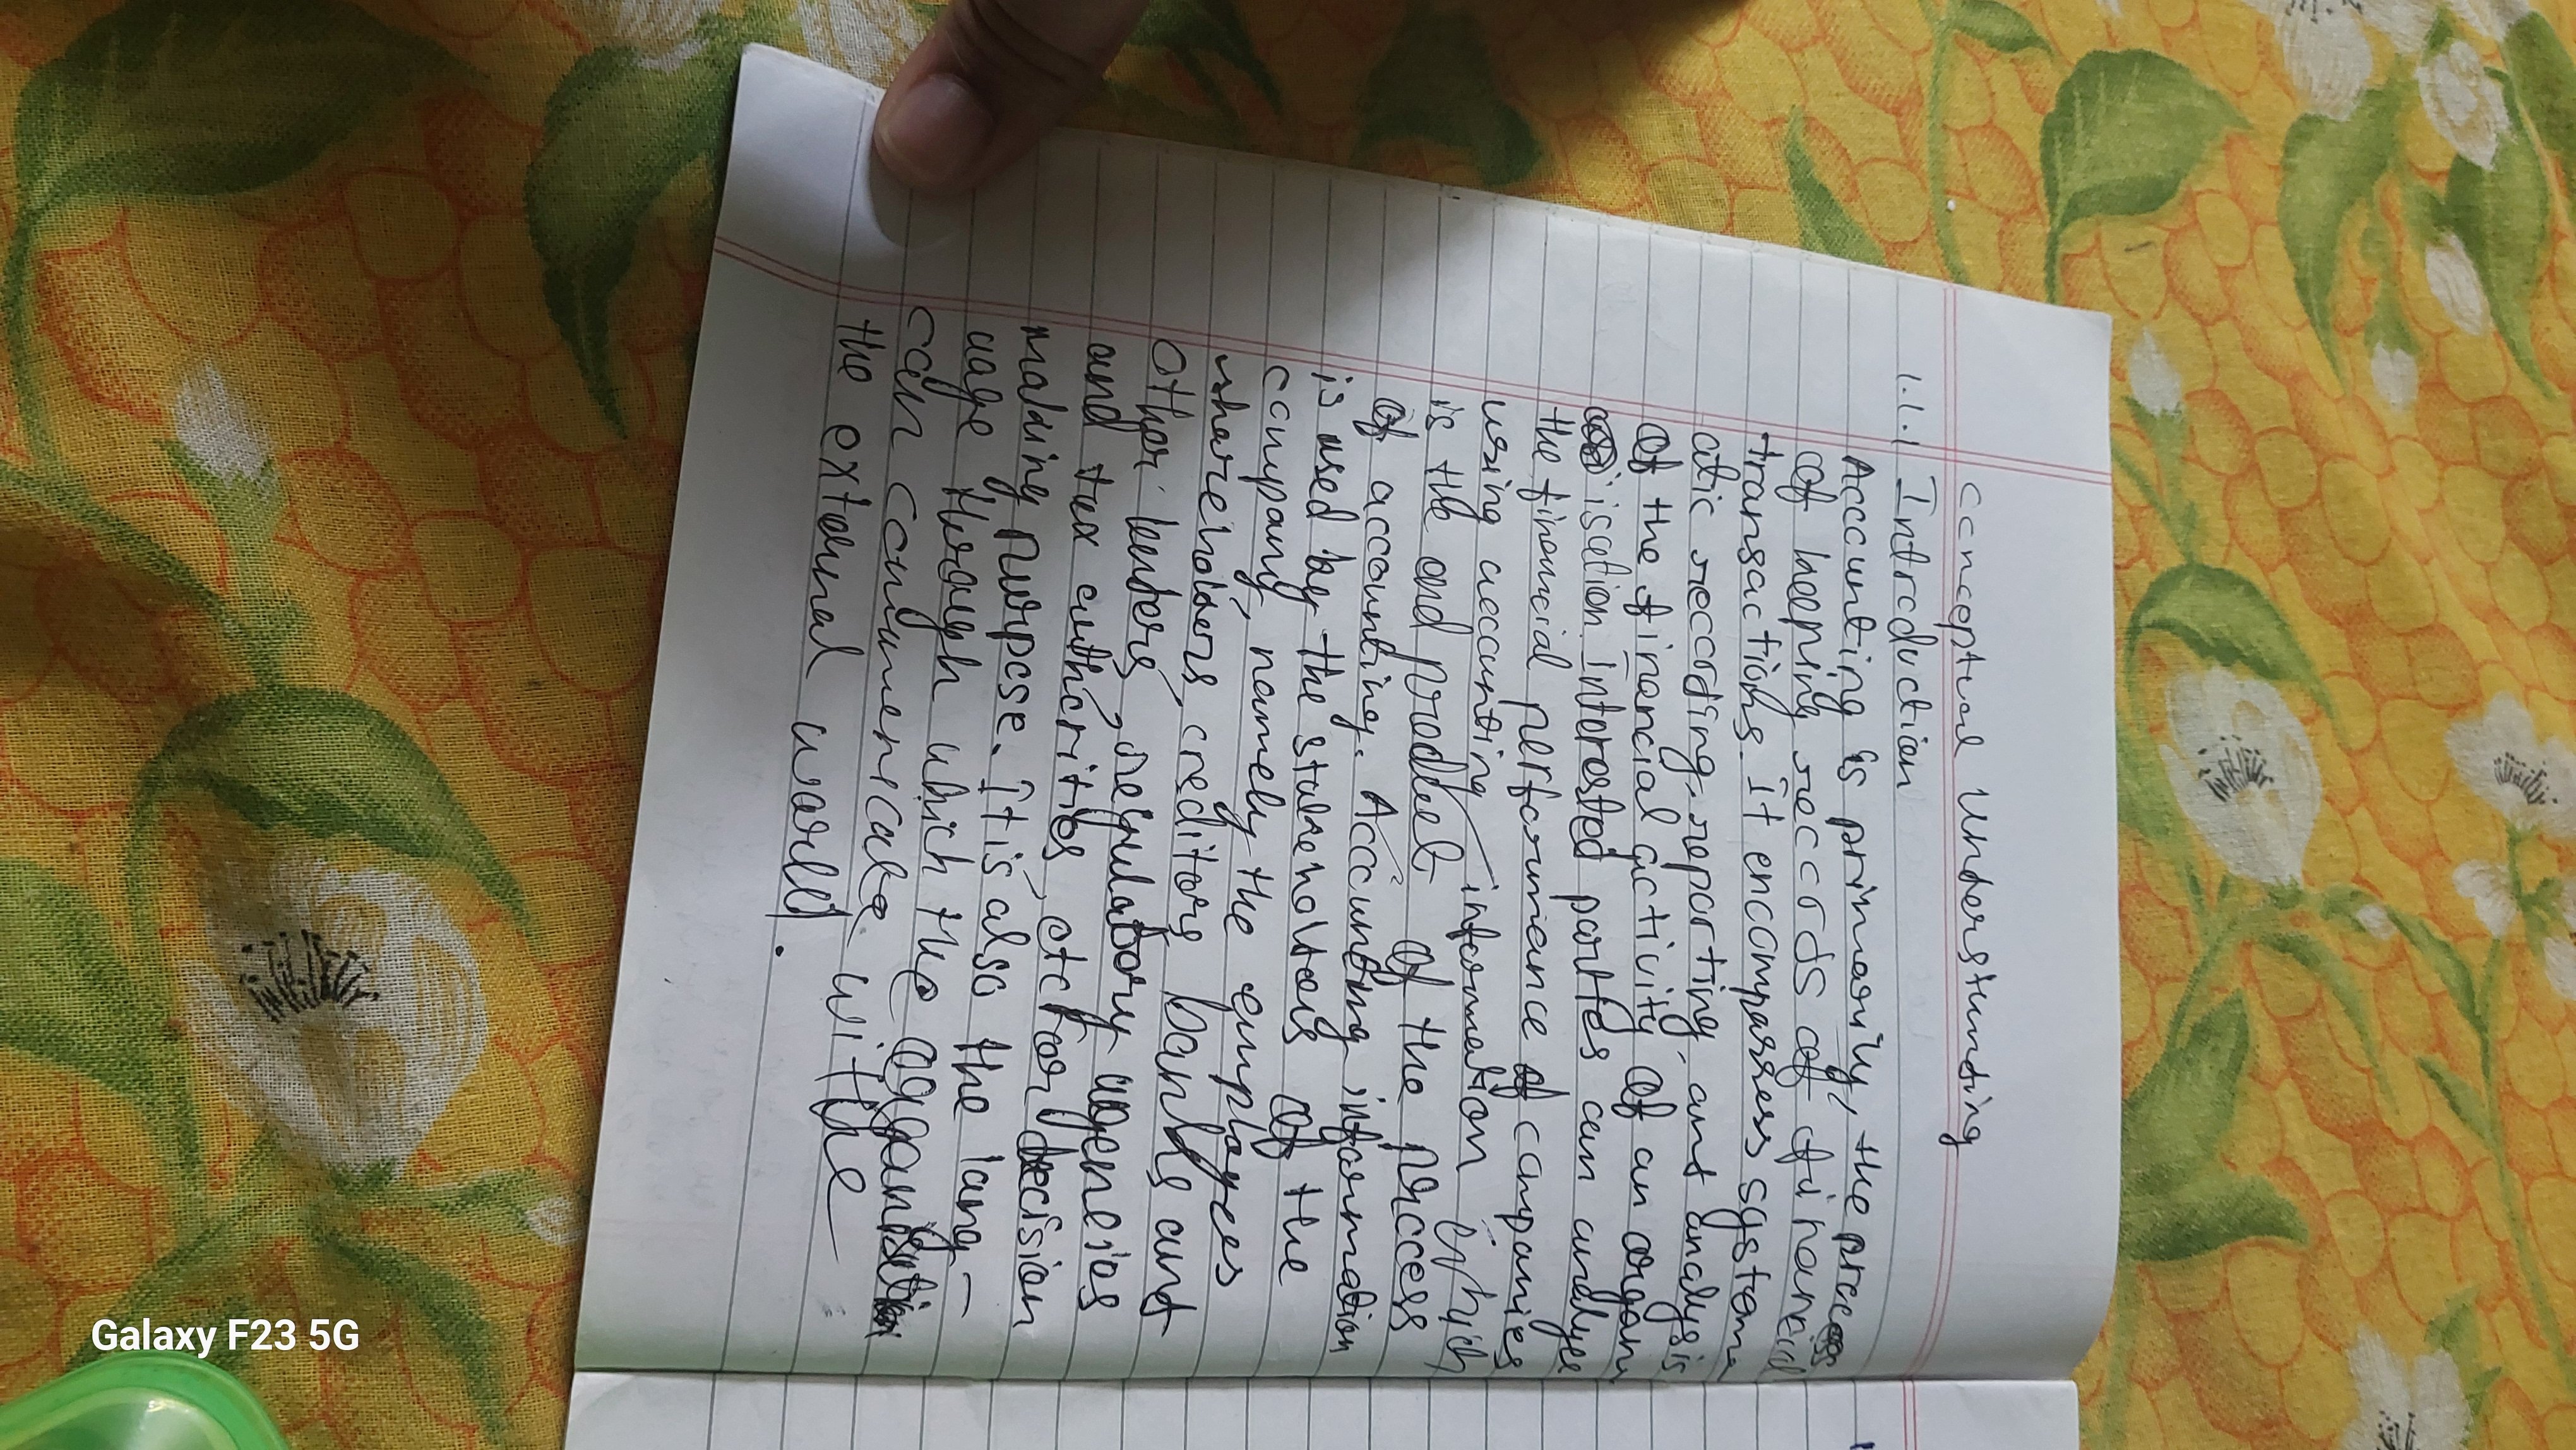 Conceptual Understanding
1.1.1 Introduction
Accounting is primarily, the process
of keeping records of financial
transactions. It encompasses system
atic recording, reporting, and analysis
of the financial activity of an organ
isation interested parties can analyse
the financial performance of companies
using accounting information which
is the end product of the process
of accounting. Accounting information
is used by the stakeholders of the
company, namely the employees
shareholders, creditors banks and
other lenders, regulatory agencies
and tax authorities, etc for decision
making purpose. It is also the lang-
uage through which the organisation
can communicate with
the external world.
Galaxy F23 5G